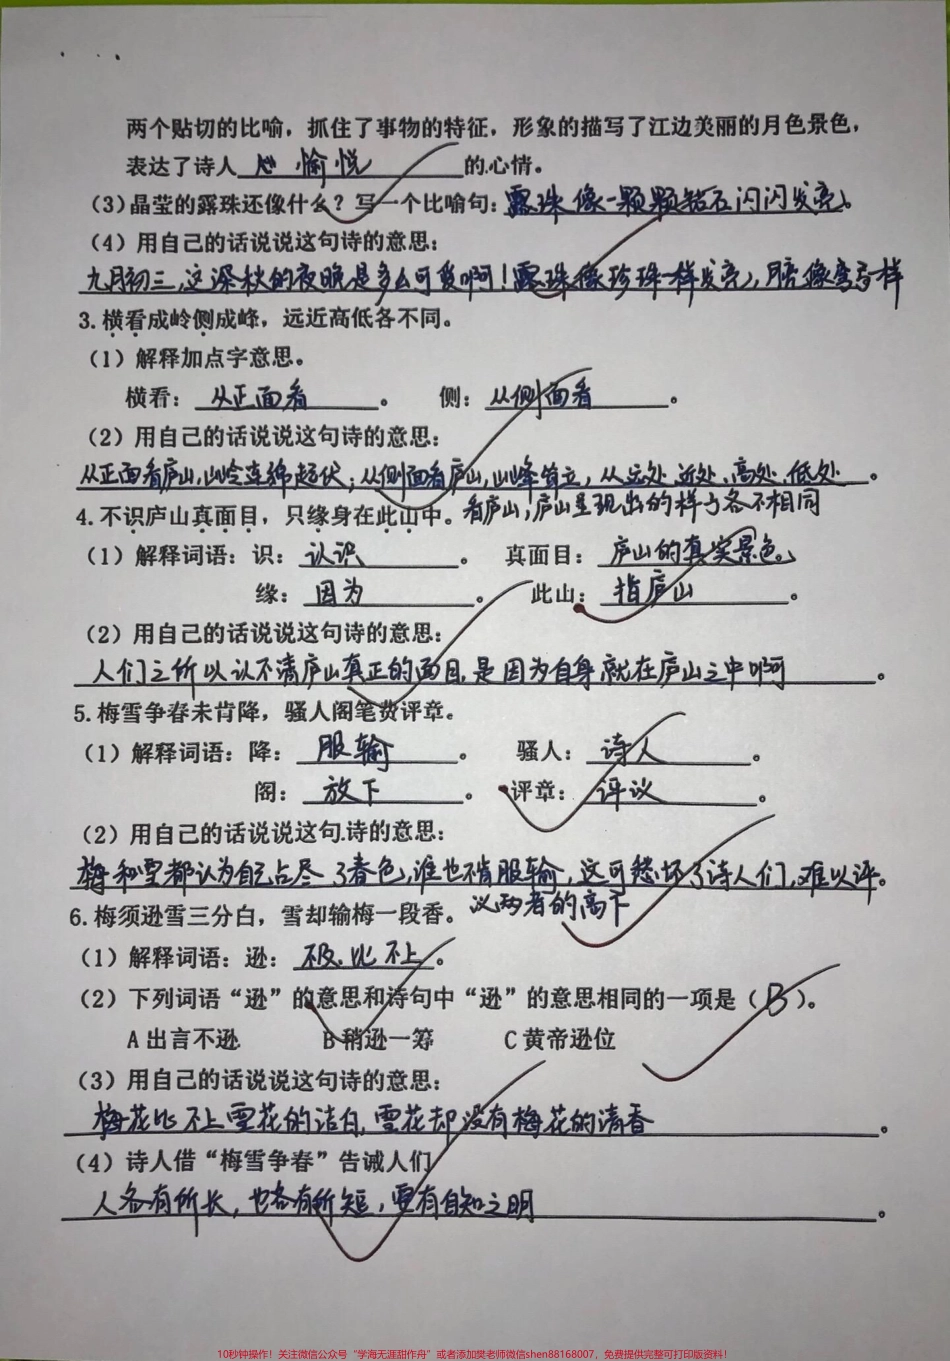 两个贴切的比喻，抓住了事物的特征，形象的描写了江边美丽的月色景色，
表达了诗人 愉悦 的心情。
（3）晶莹的露珠还像什么？写一个比喻句：露珠像一颗颗钻石闪闪发亮。
（4）用自己的话说说这句诗的意思：
九月初三，这深秋的夜晚是多么可爱啊！露珠像珍珠一样发亮，月像弯弓样
3.横看成岭侧成峰，远近高低各不同。
（1）解释加点字意思。
横看：从正面看。 侧：从侧面看。
（2）用自己的话说说这句诗的意思：
从正面看庐山，山岭连绵起伏；从侧面看庐山，山峰耸立，从远处、近处、高处、低处。
4.不识庐山真面目，只缘身在此山中。看庐山，庐山呈现出的样子各不相同
（1）解释词语：识：认识。 真面目：庐山的真实景色。
缘：因为。 此山：指庐山。
（2）用自己的话说说这句诗的意思：
人们之所以认不清庐山真正的面目，是因为自身就在庐山之中啊。
5.梅雪争春未肯降，骚人阁笔费评章。
（1）解释词语：降：服输。 骚人：诗人。
阁：放下。 评章：评议。
（2）用自己的话说说这句诗的意思：
梅和雪都认为自己占尽了春色，谁也不肯服输，这可愁坏了诗人们，难以评。
6.梅须逊雪三分白，雪却输梅一段香。议两者的高下
（1）解释词语：逊：不及.比不上。
（2）下列词语“逊”的意思和诗句中“逊”的意思相同的一项是（B）。
A 出言不逊 B 稍逊一筹 C 黄帝逊位
（3）用自己的话说说这句诗的意思：
梅花比不上雪花的洁白，雪花却没有梅花的清香。
（4）诗人借“梅雪争春”告诫人们
人各有所长，也各有所短，要有自知之明。
10秒钟操作！关注微信公众号“学海无涯甜作舟”或者添加樊老师微信shen88168007，免费提供完整可打印版资料！